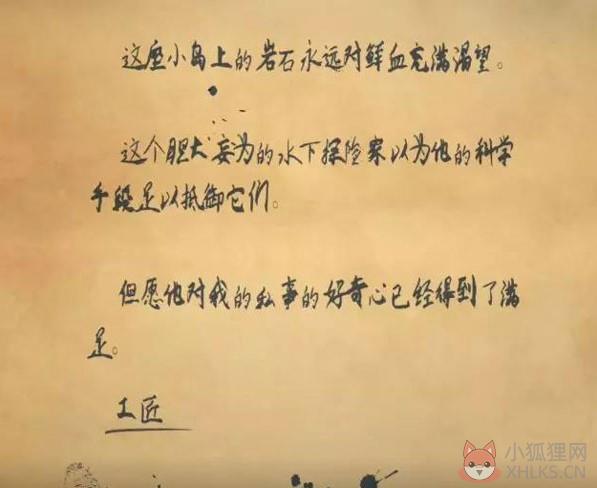 这座小岛上的岩石永远对鲜血充满渴望。
这个胆大妄为的水下探险家以为他的科学
手段足以抵御它们。
但愿他对我的私事的好奇心已经得到了满
足。
工匠
小狐狸网
XHLKS.CN